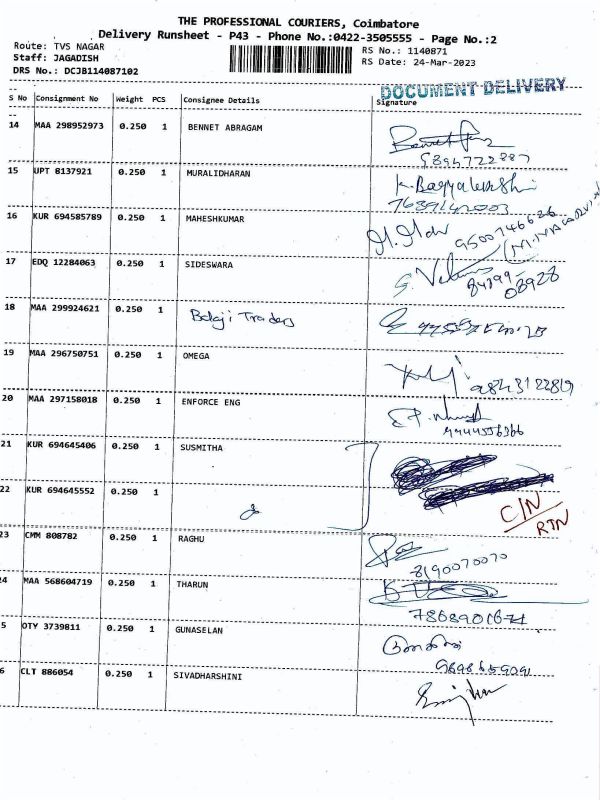 THE PROFESSIONAL COURIERS, Coimbatore
Delivery Runsheet - P43 - Phone No.:0422-3505555 - Page No.:2
Route: TVS NAGAR
Staff: JAGADISH
DRS No.: DCJB114087102
RS No.: 1140871
RS Date: 24-Mar-2023
DOCUMENT DELIVERY
S No Consignment No Weight PCS Consignee Details Signature
14 MAA 298952973 0.250 1 BENNET ABRAGAM
15 UPT 8137921 0.250 1 MURALIDHARAN
16 KUR 694585789 0.250 1 MAHESHKUMAR
9500746626
17 EDQ 12284063 0.250 1 SIDESWARA
84899-08928
18 MAA 299924621 0.250 1 Balaji Traders
19 MAA 296750751 0.250 1 OMEGA
9843122819
20 MAA 297158018 0.250 1 ENFORCE ENG
9444556366
21 KUR 694645406 0.250 1 SUSMITHA
22 KUR 694645552 0.250 1
C/N
RTN
23 CMM 808782 0.250 1 RAGHU
8190070070
24 MAA 568604719 0.250 1 THARUN
5 OTY 3739811 0.250 1 GUNASELAN
6 CLT 886054 0.250 1 SIVADHARSHINI